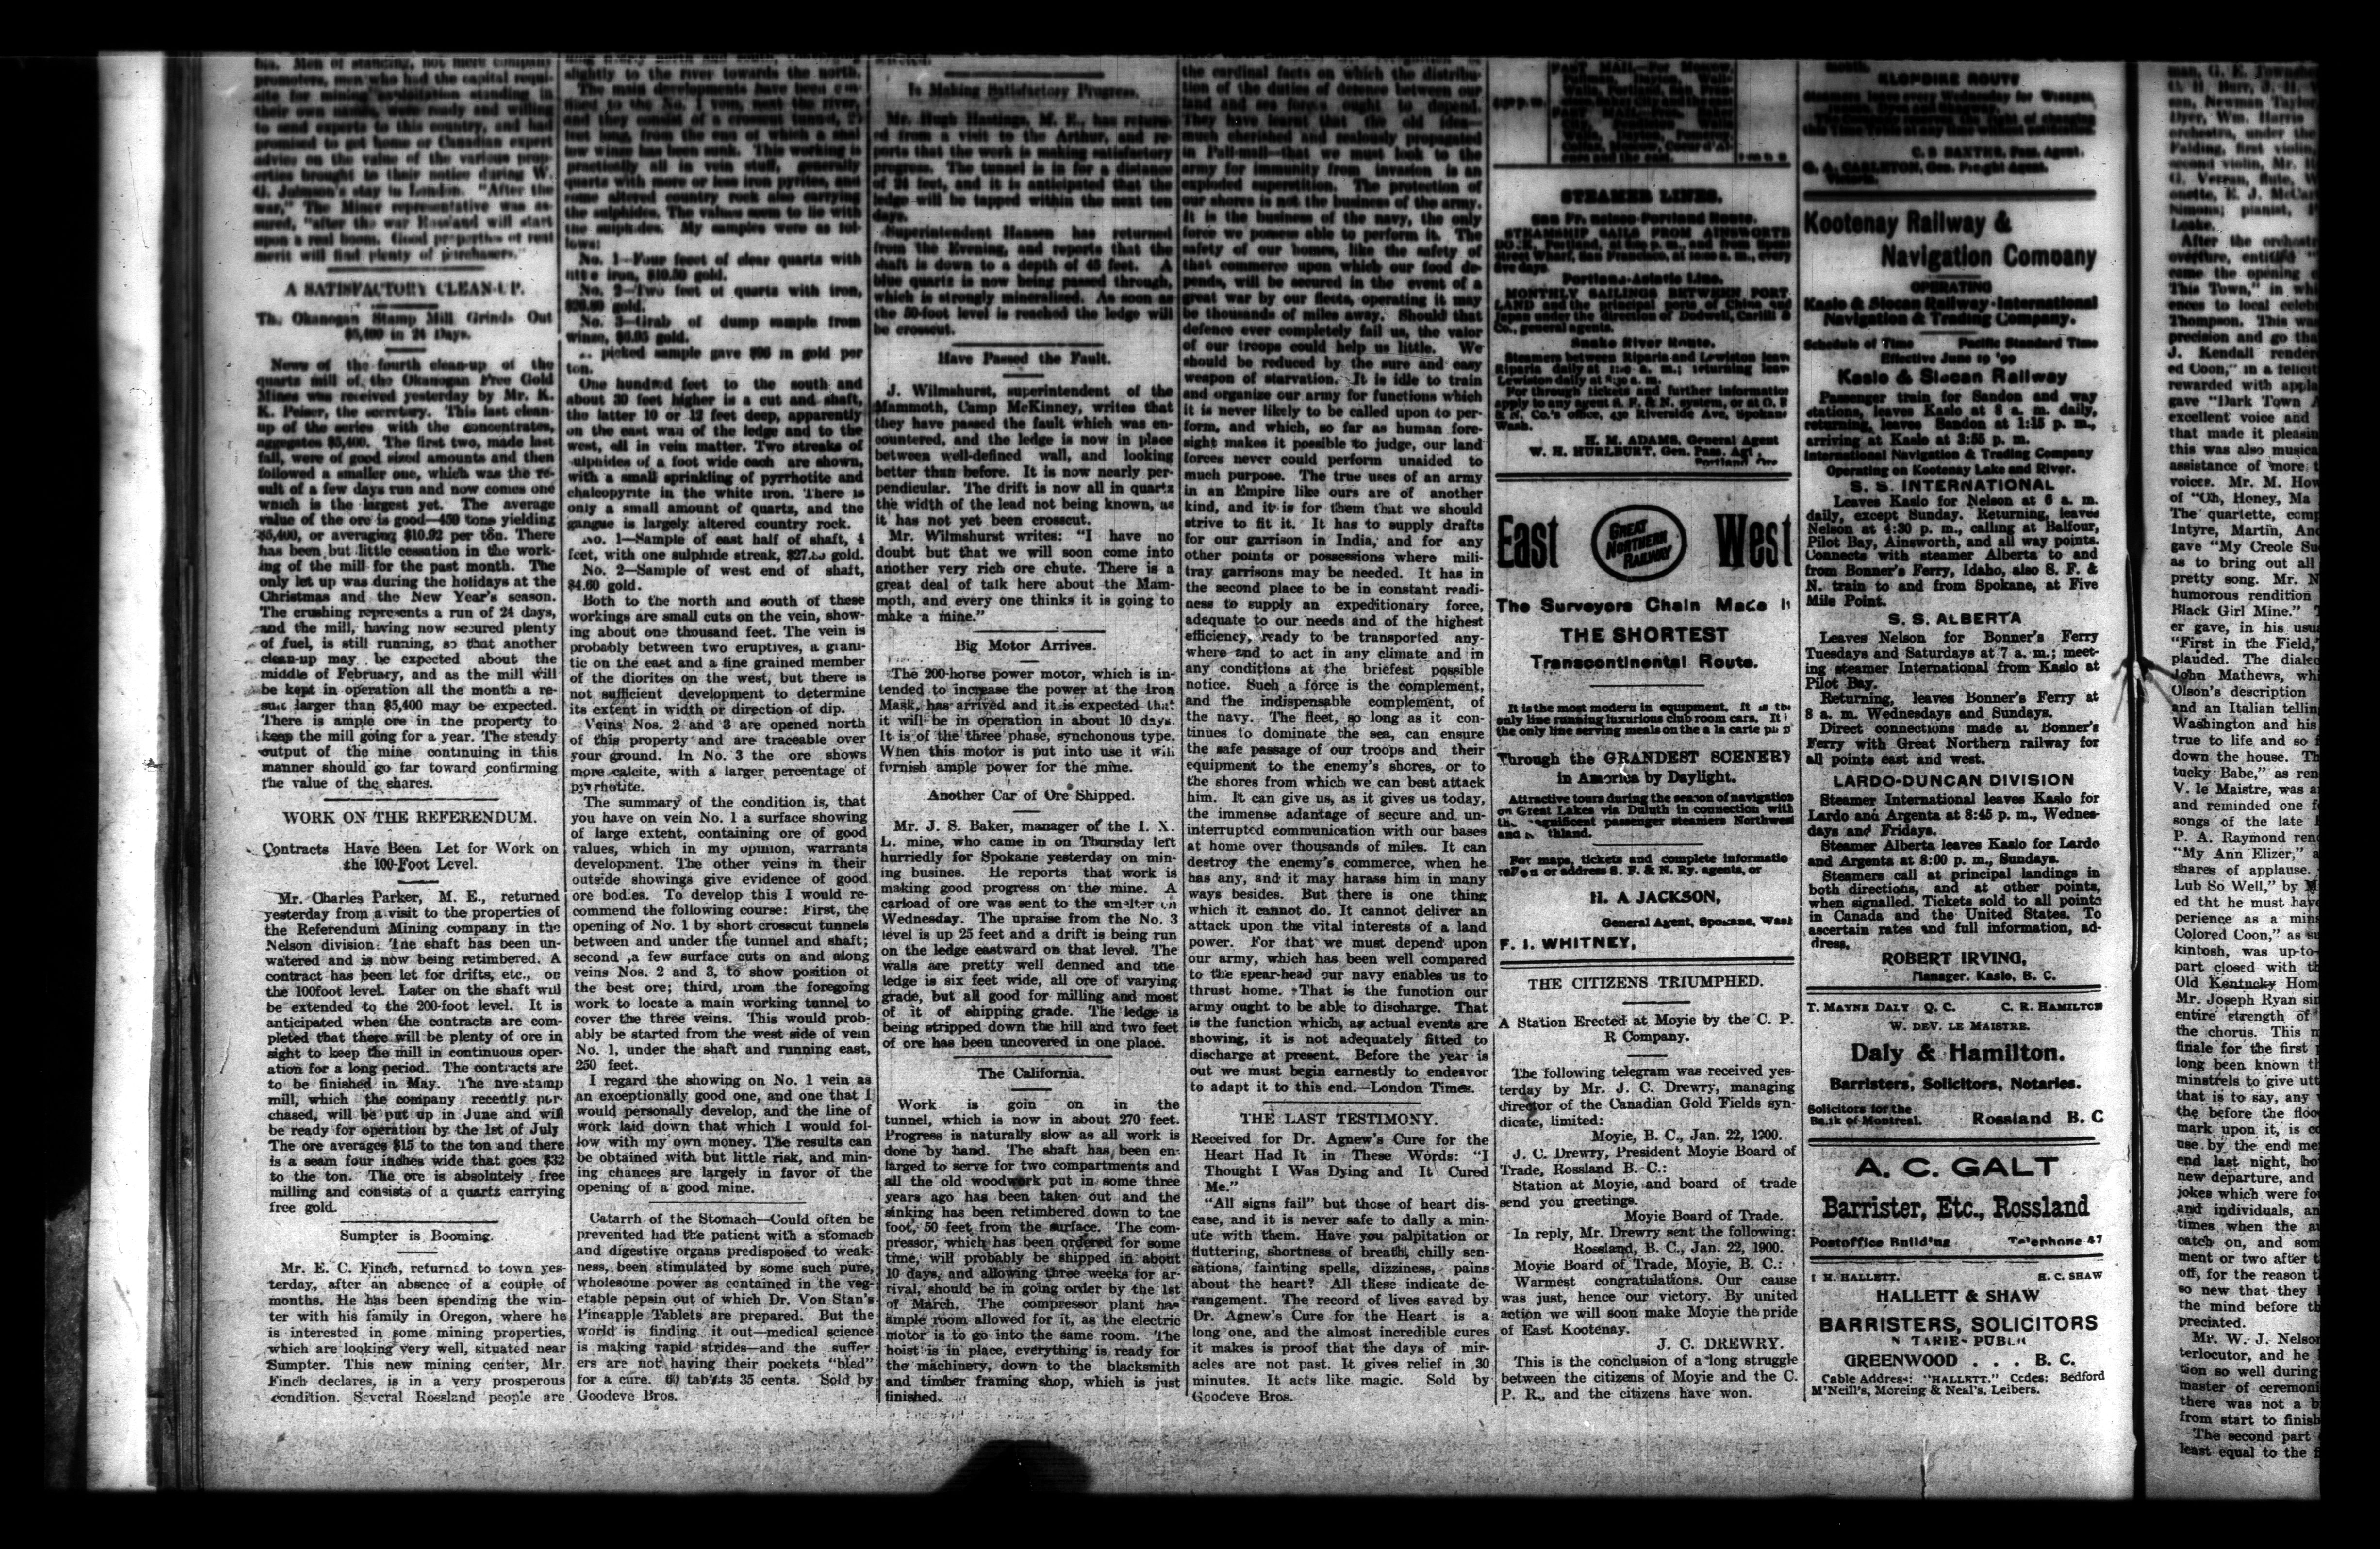 bia. Men of standing, not mere company
promoters, men who had the capital requi-
site for mining exploitation standing in
their own names, were ready and willing
to send experts to this country, and had
promised to get home or Canadian expert
advice on the value of the various prop-
erties brought to their notice during W.
G. Johnson's stay in London. "After the
war," The Miner representative was as-
sured, "after the war Rossland will start
upon a real boom. Good properties of real
merit will find plenty of purchasers."
A SATISFACTORY CLEAN-UP.
The Okanogan Stamp Mill Grinds Out
$5,400 in 24 Days.
News of the fourth clean-up of the
quartz mill of the Okanogan Free Gold
Mines was received yesterday by Mr. K.
K. Peiser, the secretary. This last clean-
up of the series with the concentrates,
aggregates $5,400. The first two, made last
fall, were of good sized amounts and then
followed a smaller one, which was the re-
sult of a few days run and now comes one
which is the largest yet. The average
value of the ore is good—450 tons yielding
$5,400, or averaging $10.92 per ton. There
has been but little cessation in the work-
ing of the mill for the past month. The
only let up was during the holidays at the
Christmas and the New Year's season.
The crushing represents a run of 24 days,
and the mill, having now secured plenty
of fuel, is still running, so that another
clean-up may be expected about the
middle of February, and as the mill will
be kept in operation all the month a re-
sult larger than $5,400 may be expected.
There is ample ore in the property to
keep the mill going for a year. The steady
output of the mine continuing in this
manner should go far toward confirming
the value of the shares.
WORK ON THE REFERENDUM.
Contracts Have Been Let for Work on
the 100-Foot Level.
Mr. Charles Parker, M. E., returned
yesterday from a visit to the properties of
the Referendum Mining company in the
Nelson division. The shaft has been un-
watered and is now being retimbered. A
contract has been let for drifts, etc., on
the 100foot level. Later on the shaft will
be extended to the 200-foot level. It is
anticipated when the contracts are com-
pleted that there will be plenty of ore in
sight to keep the mill in continuous oper-
ation for a long period. The contracts are
to be finished in May. The five-stamp
mill, which the company recently pur-
chased, will be put up in June and will
be ready for operation by the 1st of July
The ore averages $15 to the ton and there
is a seam four inches wide that goes $32
to the ton. The ore is absolutely free
milling and consists of a quartz carrying
free gold.
Sumpter is Booming.
Mr. E. C. Finch, returned to town yes-
terday, after an absence of a couple of
months. He has been spending the win-
ter with his family in Oregon, where he
is interested in some mining properties,
which are looking very well, situated near
Sumpter. This new mining center, Mr.
Finch declares, is in a very prosperous
condition. Several Rossland people are
slightly to the river towards the north.
The main developments have been con-
fined to the No. 1 vein, next the river,
and they consist of a crosscut tunnel,
feet long, from the end of which a shal
low winze has been sunk. This working is
practically all in vein stuff, generally
quartz with more or less iron pyrites, and
some altered country rock also carrying
the sulphides. The values seem to lie with
the sulphides. My samples were as fol-
lows:
No. 1—Four feet of clear quartz with
little iron, $10.50 gold.
No. 2—Two feet of quartz with iron,
gold.
No. 3—Grab of dump sample from
winze, $6.95 gold.
picked sample gave $96 in gold per
ton.
One hundred feet to the south and
about 30 feet higher is a cut and shaft,
the latter 10 or 12 feet deep, apparently
on the east wall of the ledge and to the
west, all in vein matter. Two streaks of
sulphides of a foot wide each are shown,
with a small sprinkling of pyrrhotite and
chalcopyrite in the white iron. There is
only a small amount of quartz, and the
gangue is largely altered country rock.
No. 1—Sample of east half of shaft, 4
feet, with one sulphide streak, gold.
No. 2—Sample of west end of shaft,
$4.60 gold.
Both to the north and south of these
workings are small cuts on the vein, show-
ing about one thousand feet. The vein is
probably between two eruptives, a grani-
tic on the east and a fine grained member
of the diorites on the west, but there is
not sufficient development to determine
its extent in width or direction of dip.
Veins Nos. 2 and 3 are opened north
of this property and are traceable over
your ground. In No. 3 the ore shows
more calcite, with a larger percentage of
pyrrhotite.
The summary of the condition is, that
you have on vein No. 1 a surface showing
of large extent, containing ore of good
values, which in my opinion, warrants
development. The other veins in their
outside showings give evidence of good
ore bodies. To develop this I would re-
commend the following course: First, the
opening of No. 1 by short crosscut tunnels
between and under the tunnel and shaft;
second ,a few surface cuts on and along
veins Nos. 2 and 3, to show position of
the best ore; third, from the foregoing
work to locate a main working tunnel to
cover the three veins. This would prob-
ably be started from the west side of vein
No. 1, under the shaft and running east,
250 feet.
I regard the showing on No. 1 vein as
an exceptionally good one, and one that I
would personally develop, and the line of
work laid down that which I would fol-
low with my own money. The results can
be obtained with but little risk, and min-
ing chances are largely in favor of the
opening of a good mine.
Catarrh of the Stomach—Could often be
prevented had the patient with a stomach
and digestive organs predisposed to weak-
ness, been stimulated by some such pure,
wholesome power as contained in the veg-
etable pepsin out of which Dr. Von Stan's
Pineapple Tablets are prepared. But the
world is finding it out—medical science
is making rapid strides—and the suffer
ers are not having their pockets "bled"
for a cure. 60 tablets 35 cents. Sold by
Goodeve Bros.
Is Making Satisfactory Progress.
Mr. Hugh Hastings, M. E., has return-
ed from a visit to the Arthur, and re-
ports that the work is making satisfactory
progress. The tunnel is in for a distance
of 24 feet, and it is anticipated that the
ledge will be tapped within the next ten
days.
Superintendent Hansen has returned
from the Evening, and reports that the
shaft is down to a depth of 45 feet. A
blue quartz is now being passed through,
which is strongly mineralized. As soon as
the 50-foot level is reached the ledge will
be crosscut.
Have Passed the Fault.
J. Wilmshurst, superintendent of the
Mammoth, Camp McKinney, writes that
they have passed the fault which was en-
countered, and the ledge is now in place
between well-defined wall, and looking
better than before. It is now nearly per-
pendicular. The drift is now all in quartz
the width of the lead not being known, as
it has not yet been crosscut.
Mr. Wilmshurst writes: "I have no
doubt but that we will soon come into
another very rich ore chute. There is a
great deal of talk here about the Mam-
moth, and every one thinks it is going to
make a mine."
Big Motor Arrives.
The 200-horse power motor, which is in-
tended to increase the power at the Iron
Mask, has arrived and it is expected that
it will be in operation in about 10 days.
It is of the three phase, synchonous type.
When this motor is put into use it will
furnish ample power for the mine.
Another Car of Ore Shipped.
Mr. J. S. Baker, manager of the I. X.
L. mine, who came in on Thursday left
hurriedly for Spokane yesterday on min-
ing busines. He reports that work is
making good progress on the mine. A
carload of ore was sent to the smelter on
Wednesday. The upraise from the No. 3
level is up 25 feet and a drift is being run
on the ledge eastward on that level. The
walls are pretty well denned and the
ledge is six feet wide, all ore of varying
grade, but all good for milling and most
of it of shipping grade. The ledge is
being stripped down the hill and two feet
of ore has been uncovered in one place.
The California.
Work is goin on in the
tunnel, which is now in about 270 feet.
Progress is naturally slow as all work is
done by hand. The shaft has been en-
larged to serve for two compartments and
all the old woodwork put in some three
years ago has been taken out and the
sinking has been retimbered down to the
foot, 50 feet from the surface. The com-
pressor, which has been ordered for some
time, will probably be shipped in about
10 days, and allowing three weeks for ar-
rival, should be in going order by the 1st
of March. The compressor plant has
ample room allowed for it, as the electric
motor is to go into the same room. The
hoist is in place, everything is ready for
the machinery, down to the blacksmith
and timber framing shop, which is just
finished.
the cardinal facts on which the distribu-
tion of the duties of defence between our
land and sea forces ought to depend.
They have learnt that the old idea—
much cherished and zealously propagated
in Pall-mall—that we must look to the
army for immunity from invasion is an
exploded superstition. The protection of
our shores is not the business of the army.
It is the business of the navy, the only
force we possess able to perform it. The
safety of our homes, like the safety of
that commerce upon which our food de-
pends, will be secured in the event of a
great war by our fleets, operating it may
be thousands of miles away. Should that
defence ever completely fail us, the valor
of our troops could help us little. We
should be reduced by the sure and easy
weapon of starvation. It is idle to train
and organize our army for functions which
it is never likely to be called upon to per-
form, and which, so far as human fore-
sight makes it possible to judge, our land
forces never could perform unaided to
much purpose. The true uses of an army
in an Empire like ours are of another
kind, and it is for them that we should
strive to fit it. It has to supply drafts
for our garrison in India, and for any
other points or possessions where mili-
tray garrisons may be needed. It has in
the second place to be in constant readi-
ness to supply an expeditionary force,
adequate to our needs and of the highest
efficiency, ready to be transported any-
where and to act in any climate and in
any conditions at the briefest possible
notice. Such a force is the complement,
and the indispensable complement, of
the navy. The fleet, so long as it con-
tinues to dominate the sea, can ensure
the safe passage of our troops and their
equipment to the enemy's shores, or to
the shores from which we can best attack
him. It can give us, as it gives us today,
the immense adantage of secure and un-
interrupted communication with our bases
at home over thousands of miles. It can
destroy the enemy's commerce, when he
has any, and it may harass him in many
ways besides. But there is one thing
which it cannot do. It cannot deliver an
attack upon the vital interests of a land
power. For that we must depend upon
our army, which has been well compared
to the spear-head our navy enables us to
thrust home. That is the function our
army ought to be able to discharge. That
is the function which, as actual events are
showing, it is not adequately fitted to
discharge at present. Before the year is
out we must begin earnestly to endeavor
to adapt it to this end.—London Times.
THE LAST TESTIMONY.
Received for Dr. Agnew's Cure for the
Heart Had It in These Words: "I
Thought I Was Dying and It Cured
Me."
"All signs fail" but those of heart dis-
ease, and it is never safe to dally a min-
ute with them. Have you palpitation or
fluttering, shortness of breath, chilly sen-
sations, fainting spells, dizziness, pains
about the heart? All these indicate de-
rangement. The record of lives saved by
Dr. Agnew's Cure for the Heart is a
long one, and the almost incredible cures
it makes is proof that the days of mir-
acles are not past. It gives relief in 30
minutes. It acts like magic. Sold by
Goodeve Bros.
STEAMER LINES.
San Francisco-Portland Route.
STEAMSHIP SAILS FROM AINSWORTH
Portland-Asiatic Line.
MONTHLY SAILINGS BETWEEN PORT
LAND and the principal ports of China and
Japan under the direction of Dodwell, Carlill &
Co., general agents.
Snake River Route.
Steamers between Riparia and Lewiston leave
Riparia daily at a. m.; returning leave
Lewiston daily at 8:30 a. m.
For through tickets and further information
apply to any agent S. F. & N. system, or at O. R
& N. Co.'s office, 430 Riverside Ave, Spokane
Wash.
H. M. ADAMS, General Agent
W. H. HURLBURT, Gen. Pass. Agt,
Portland Ore
East GREAT NORTHERN RAILWAY West
The Surveyors Chain Made It
THE SHORTEST
Transcontinental Route.
It is the most modern in equipment. It is the
only line running luxurious club room cars. It i
the only line serving meals on the a la carte
Through the GRANDEST SCENERY
in America by Daylight.
Attractive tours during the season of navigation
on Great Lakes via Duluth in connection with
magnificent passenger steamers Northwest
and
For maps, tickets and complete informatio
call on or address S. F. & N. Ry. agents, or
H. A JACKSON,
General Agent, Spokane, Wash
F. I. WHITNEY,
THE CITIZENS TRIUMPHED.
A Station Erected at Moyie by the C. P.
R Company.
The following telegram was received yes-
terday by Mr. J. C. Drewry, managing
director of the Canadian Gold Fields syn-
dicate, limited:
Moyie, B. C., Jan. 22, 1900.
J. C. Drewry, President Moyie Board of
Trade, Rossland B. C.:
Station at Moyie, and board of trade
send you greetings.
Moyie Board of Trade.
In reply, Mr. Drewry sent the following:
Rossland, B. C., Jan. 22, 1900.
Moyie Board of Trade, Moyie, B. C.:
Warmest congratulations. Our cause
was just, hence our victory. By united
action we will soon make Moyie the pride
of East Kootenay.
J. C. DREWRY.
This is the conclusion of a long struggle
between the citizens of Moyie and the C.
P. R., and the citizens have won.
KLONDIKE ROUTE
C. S. BAXTER, Pass. Agent.
G. A. CARLETON, Gen. Freight Agent.
Victoria.
Kootenay Railway &
Navigation Company
OPERATING
Kaslo & Slocan Railway-International
Navigation & Trading Company.
Schedule of Time Pacific Standard Time
Effective June 19 '99
Kaslo & Slocan Railway
Passenger train for Sandon and way
stations, leaves Kaslo at 8 a. m. daily,
returning, leaves Sandon at 1:15 p. m.,
arriving at Kaslo at 3:55 p. m.
International Navigation & Trading Company
Operating on Kootenay Lake and River.
S. S. INTERNATIONAL
Leaves Kaslo for Nelson at 6 a. m.
daily, except Sunday. Returning, leaves
Nelson at 4:30 p. m., calling at Balfour,
Pilot Bay, Ainsworth, and all way points.
Connects with steamer Alberta to and
from Bonner's Ferry, Idaho, also S. F. &
N. train to and from Spokane, at Five
Mile Point.
S. S. ALBERTA
Leaves Nelson for Bonner's Ferry
Tuesdays and Saturdays at 7 a. m.; meet-
ing steamer International from Kaslo at
Pilot Bay.
Returning, leaves Bonner's Ferry at
8 a. m. Wednesdays and Sundays.
Direct connections made at Bonner's
Ferry with Great Northern railway for
all points east and west.
LARDO-DUNCAN DIVISION
Steamer International leaves Kaslo for
Lardo and Argenta at 8:45 p. m., Wednes-
days and Fridays.
Steamer Alberta leaves Kaslo for Lardo
and Argenta at 8:00 p. m., Sundays.
Steamers call at principal landings in
both directions, and at other points,
when signalled. Tickets sold to all points
in Canada and the United States. To
ascertain rates and full information, ad-
dress,
ROBERT IRVING,
Manager. Kaslo, B. C.
T. MAYNE DALY Q. C. C. R. HAMILTON
W. DEV. LE MAISTRE.
Daly & Hamilton.
Barristers, Solicitors, Notaries.
Solicitors for the
Bank of Montreal. Rossland B. C
A. C. GALT
Barrister, Etc., Rossland
Postoffice Building Telephone 47
I M. HALLETT. H. C. SHAW
HALLETT & SHAW
BARRISTERS, SOLICITORS
GREENWOOD . . . B. C.
Cable Address: "HALLETT." Codes: Bedford
M'Neill's, Moreing & Neal's, Leibers.
man, G. E. Townshe
son, Newman Taylor
Dyer, Wm. Harris
orchestra, under the
Falding, first violin,
second violin, Mr. H
G. Vezran, flute, W
onette, E. J. McCar
Simons; pianist,
Leake.
After the orchestr
overture, entitled
came the opening
This Town," in whi
ences to local celeb
Thompson. This was
precision and go tha
J. Kendall render
ed Coon," in a felicit
rewarded with appla
gave "Dark Town
excellent voice and
that made it pleasin
this was also musica
assistance of more t
voices. Mr. M. How
of "Oh, Honey, Ma
The quartette, comp
Intyre, Martin, And
gave "My Creole Su
as to bring out all
pretty song. Mr. N
humorous rendition
Black Girl Mine."
er gave, in his usua
"First in the Field,"
plauded. The dialec
John Mathews, whi
Olson's description
and an Italian tellin
Washington and his
true to life and so f
down the house. Th
tucky Babe," as ren
V. le Maistre, was a
and reminded one f
songs of the late
P. A. Raymond ren
"My Ann Elizer," a
shares of applause.
Lub So Well," by M
ed tht he must have
perience as a mins
Colored Coon," as su
kintosh, was up-to-
part closed with th
Old Kentucky Hom
Mr. Joseph Ryan sin
entire strength of
the chorus. This m
finale for the first
long been known th
minstrels to give utt
that is to say, any
the before the floo
mark upon it, is co
use by the end me
end last night, ho
new departure, and
jokes which were fo
and individuals, an
times when the au
catch on, and som
ment or two after t
off, for the reason t
so new that they
the mind before th
preciated.
Mr. W. J. Nelson
terlocutor, and he
tion so well during
master of ceremoni
there was not a b
from start to finish
The second part
least equal to the f